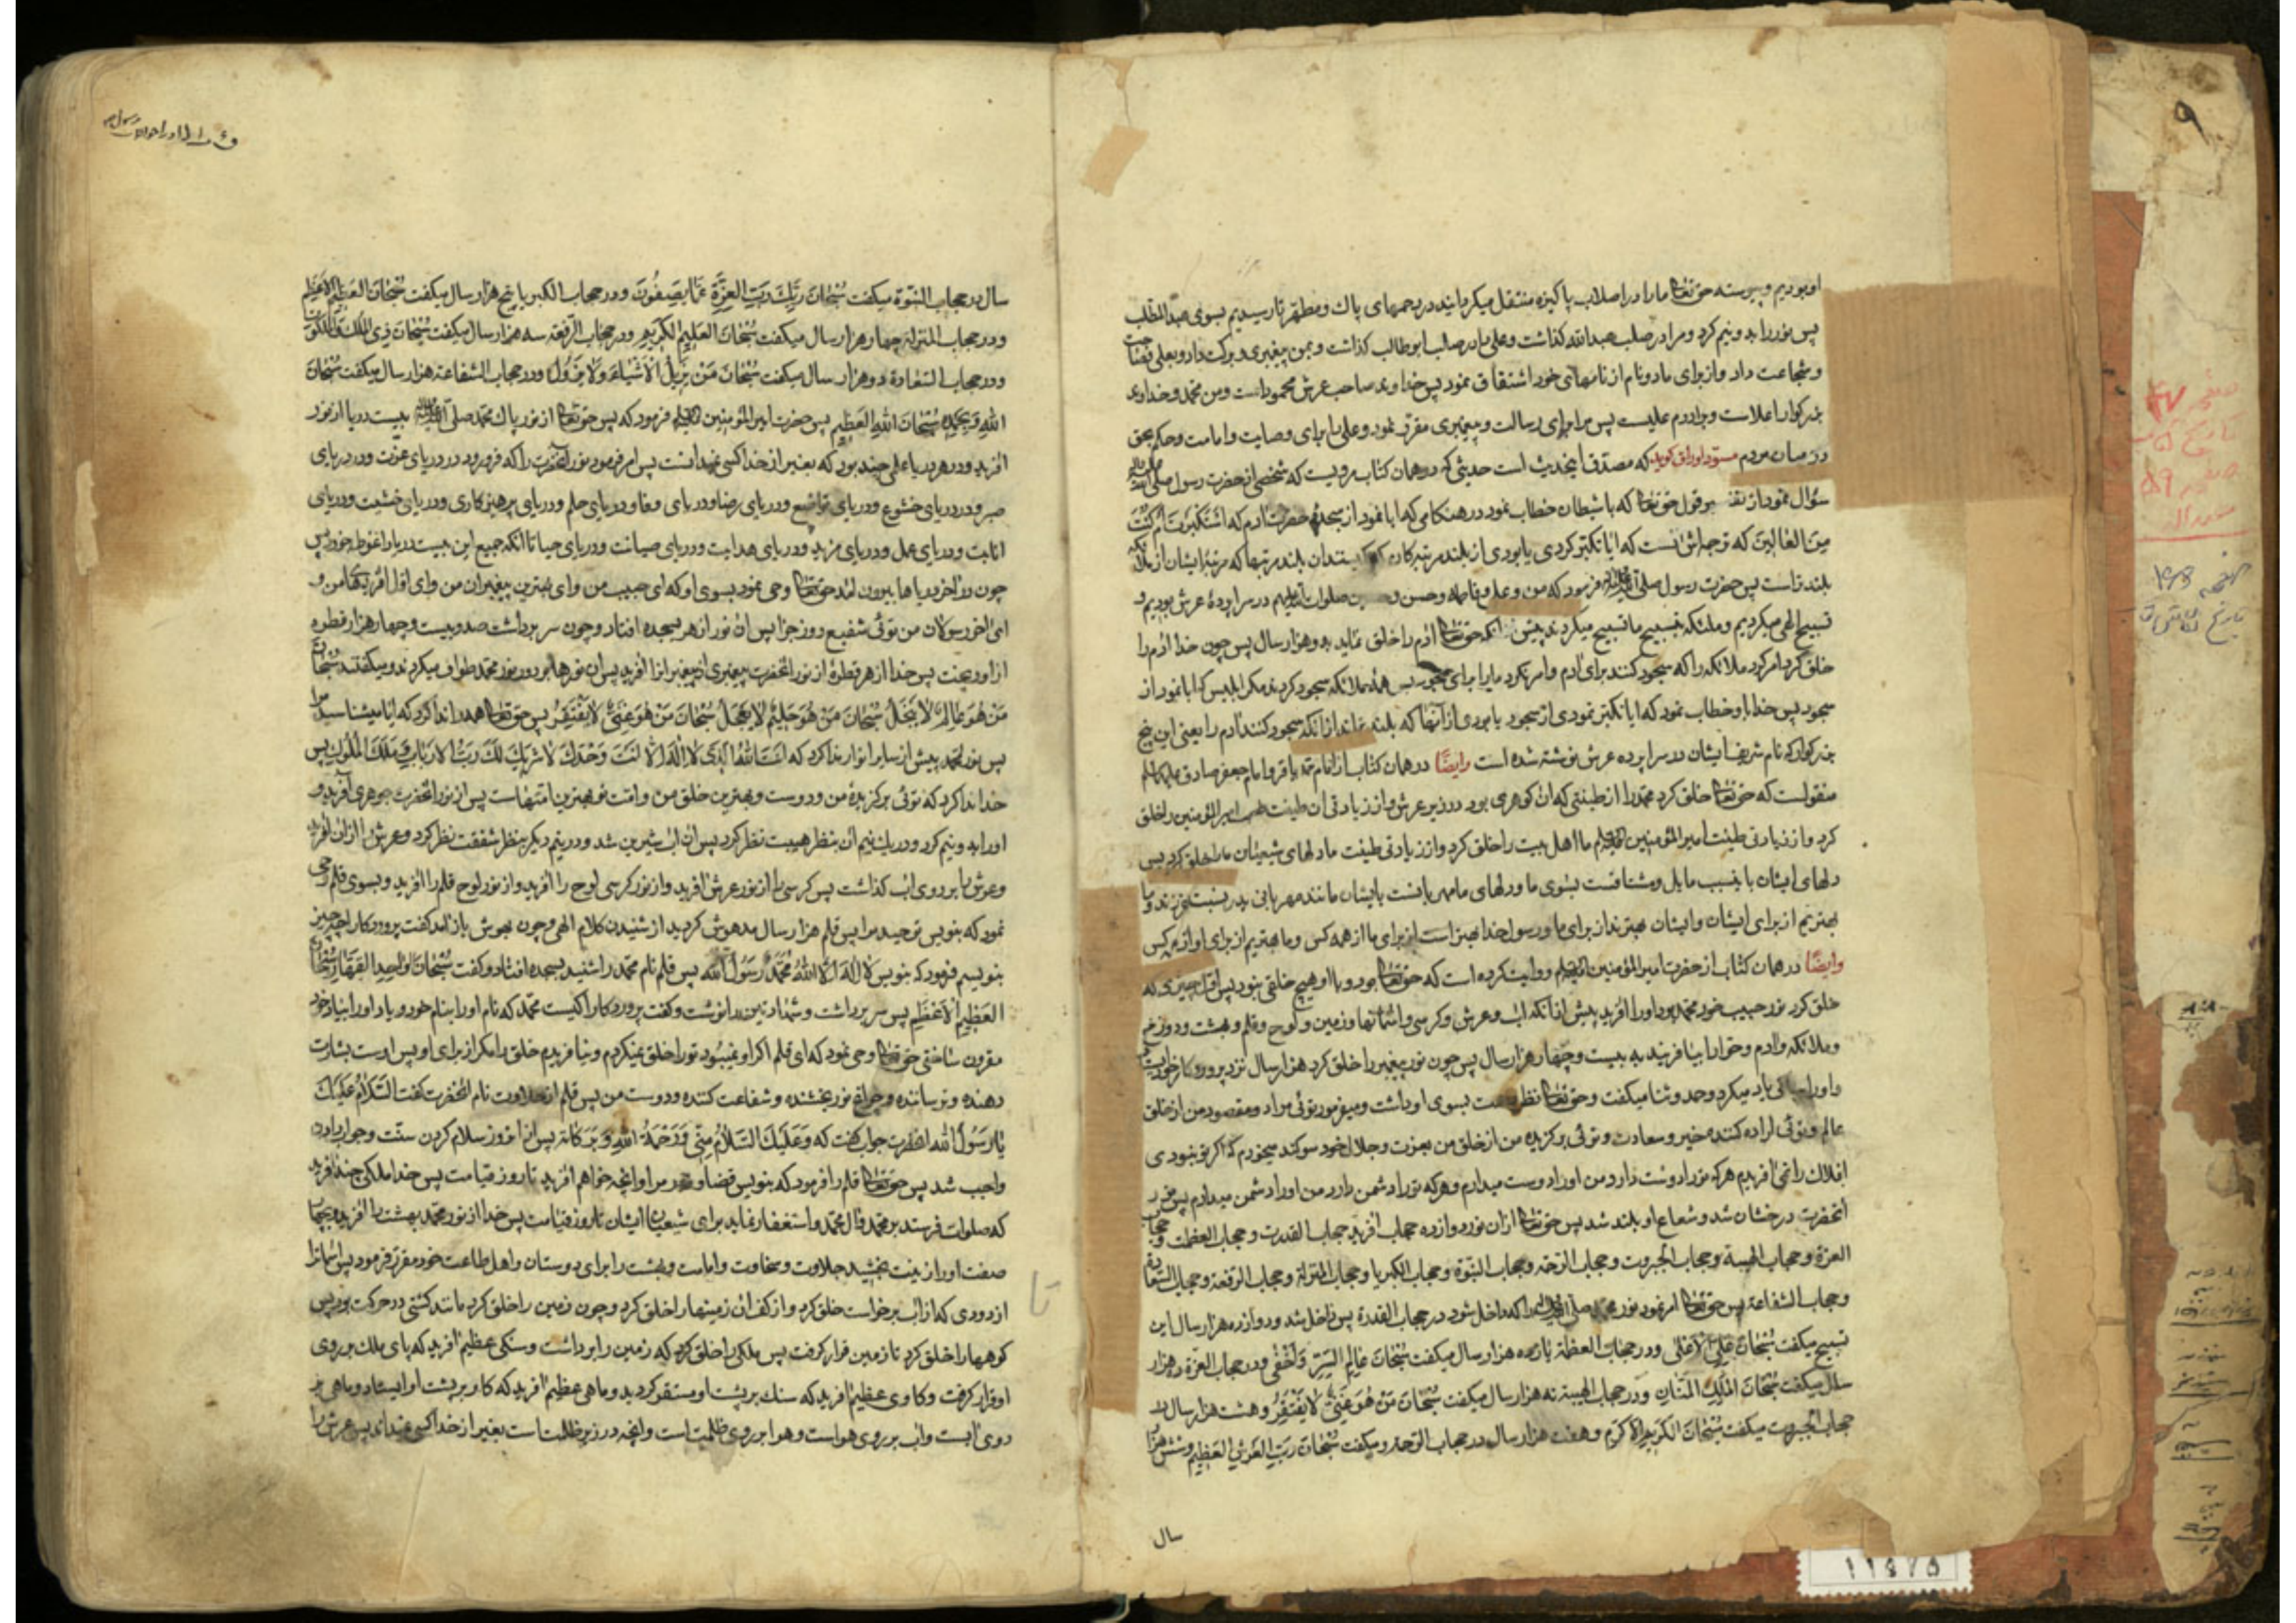 او بودیم و پیوسته حق تعالی ما را در اصلاب پاکیزه منتقل میکردانید در رحمهای پاک و مطهر تا رسیدیم بسوی عبدالمطلب
پس نور را بدو نیم کرد و مرا در صلب عبدالله کذاشت و علی را در صلب ابوطالب کذاشت و بمن پیغمبری و برکت داد و بعلی فصاحت
و شجاعت داد و از برای ما دو نام از نامهای خود اشتقاق نمود پس خداوند صاحب عرش محمود است و من محمد و خداوند
بزرکوار اعلاست و برادرم علیست پس مرا برای رسالت و پیغمبری مقرر نمود و علی را برای وصایت و امامت و حکم بحق
در میان مردم مسود اوراق کوید که مصدق اینحدیث است حدیثی که در همان کتاب مرویست که شخصی از حضرت رسول صلی الله علیه
سؤال نمود از قول حق تعالی که با شیطان خطاب نمود در هنکامی که ابا نمود از سجده حضرت ادم که اَسْتَکْبَرْتَ اَمْ کُنْتَ
مِنَ الْعَالِینَ که ترجمه‌اش آنست که ایا تکبر کردی یا بودی از بلند مرتبه‌کان کیستند ان بلند مرتبها که مرتبه ایشان از ملائکه
بلندتر است پس حضرت رسول صلی الله علیه و اله فرمود که من و علی و فاطمه و حسن و حسین صلوات الله علیهم در سراپردهٔ عرش بودیم و
تسبیح الهی میکردیم و ملئکه بتسبیح ما تسبیح میکردند پیش از انکه حق تعالی آدم را خلق نماید بدو هزار سال پس چون خدا آدم را
خلق کرد امر کرد ملائکه را که سجود کنند برای آدم و امر نکرد ما را برای سجود پس همهٔ ملائکه سجود کردند مکر ابلیس که ابا نمود از
سجود پس خدا باو خطاب نمود که ایا تکبر نمودی از سجود یا بودی از آنها که بلندترند از انکه سجود کنند آدم را یعنی این پنج
بزرکوار که نام شریف ایشان در سراپرده عرش نوشته شده است وایضًا در همان کتاب از امام محمد باقر و امام جعفر صادق علیهما السلام
منقولست که حق تعالی خلق کرد محمد را از طینتی که ان کوهری بود در زیر عرش و از زیادتی ان طینت امیرالمؤمنین را خلق
کرد و از زیادتی طینت امیرالمؤمنین علیه السلام ما اهل بیت را خلق کرد و از زیادتی طینت ما دلهای شیعیان ما را خلق کرد پس
دلهای ایشان باینسبب مایل و مشتاقست بسوی ما و دلهای ما مهربانست بایشان مانند مهربانی پدر نسبت بفرزند و ما
بهتریم از برای ایشان و ایشان بهترند از برای ما و رسول خدا بهتر است از برای ما از همه کس و ما بهتریم از برای او از همه کس
وایضًا در همان کتاب از حضرت امیرالمؤمنین علیه السلام روایت کرده است که حق تعالی بود و با او هیچ خلقی نبود پس اول چیزی که
خلق کرد نور حبیب خود محمد بود او را آفرید پیش از انکه اب و عرش و کرسی و اسمانها و زمین و لوح و قلم و بهشت و دوزخ
و ملائکه و آدم و حوا را بیافریند به بیست و چهار هزار سال پس چون نور پیغمبر را خلق کرد هزار سال نزد پروردکار خود ایستاد
و او را یاد میکرد و حمد و ثنا میکفت و حق تعالی نظر رحمت بسوی او داشت و میفرمود توئی مراد و مقصود من از خلق
عالم و توئی اراده کننده خیر و سعادت و توئی برکزیده من از خلق من بعزت و جلال خود سوکند میخورم که اکر تو نبودی
افلاک را نمی‌آفریدم هر که تو را دوست دارد من او را دوست میدارم و هر که تو را دشمن دارد من او را دشمن میدارم پس نور
آنحضرت درخشان شد و شعاع او بلند شد پس حق تعالی از ان نور دوازده حجاب آفرید حجاب القدرت و حجاب العظمت و حجاب
العزة و حجاب الهیبة و حجاب الجبروت و حجاب الرحمة و حجاب النبوة و حجاب الکبریا و حجاب المنزلة و حجاب الرفعة و حجاب السعادة
و حجاب الشفاعة پس حق تعالی امر نمود نور محمد صلی الله علیه و اله را که داخل شود در حجاب القدرة پس داخل شد و دوازده هزار سال این
تسبیح میکفت سُبْحَانَ عَلِیِّ الْاَعْلَی و در حجاب العظمة یازده هزار سال میکفت سُبْحَانَ عَالِمِ السِّرِّ وَاَخْفَی و در حجاب العزة ده هزار
سال میکفت سُبْحَانَ الْمَلِکِ الْمَنَّانِ و در حجاب الهیبة نه هزار سال میکفت سُبْحَانَ مَنْ هُوَ غَنِیٌّ لَا یَفْتَقِرُ و هشت هزار سال در
حجاب الجبروت میکفت سُبْحَانَ الْکَرِیمِ الْاَکْرَمِ و هفت هزار سال در حجاب الرحمة میکفت سُبْحَانَ رَبِّ الْعَرْشِ الْعَظِیمِ و شش هزار
سال
سال در حجاب النبوة میکفت سُبْحَانَ رَبِّکَ رَبِّ الْعِزَّةِ عَمَّا یَصِفُونَ و در حجاب الکبریا پنج هزار سال میکفت سُبْحَانَ الْعَظِیمِ الْاَعْظَمِ
و در حجاب المنزلة چهار هزار سال میکفت سُبْحَانَ الْعَلِیمِ الْکَرِیمِ و در حجاب الرفعة سه هزار سال میکفت سُبْحَانَ ذِی الْمُلْکِ وَالْمَلَکُوتِ
و در حجاب السعادة دو هزار سال میکفت سُبْحَانَ مَنْ یُزِیلُ الْاَشْیَاءَ وَلَا یَزُولُ و در حجاب الشفاعة هزار سال میکفت سُبْحَانَ
اللهِ وَبِحَمْدِهِ سُبْحَانَ اللهِ الْعَظِیمِ پس حضرت امیرالمؤمنین علیه السلام فرمود که پس حق تعالی از نور پاک محمد صلی الله علیه و اله بیست دریا از نور
آفرید و در هر دریا علمی چند بود که بغیر از خدا کسی نمیدانست پس امر فرمود نور آنحضرت را که فرو رود در دریای عزت و در دریای
صبر و در دریای خشوع و در دریای تواضع و در دریای رضا و در دریای وفا و دریای حلم و دریای پرهیزکاری و دریای خشیت و دریای
انابت و دریای عمل و دریای مزید و دریای هدایت و دریای صیانت و دریای حیا تا انکه جمیع این بیست دریا را غوطه خورد پس
چون از آخر دریاها بیرون امد حق تعالی وحی نمود بسوی او که ای حبیب من و ای بهترین پیغمبران من و ای اول آفریدهای من و
ای آخر رسولان من توئی شفیع روز جزا پس ان نور ازهر بسجده افتاد و چون سر برداشت صد و بیست و چهار هزار قطره
از او ریخت پس خدا از هر قطرهٔ از نور آنحضرت پیغمبری از پیغمبران را آفرید پس ان نورها بر دور نور محمد طواف میکردند و میکفتند سُبْحَانَ
مَنْ هُوَ عَالِمٌ لَا یَجْهَلُ سُبْحَانَ مَنْ هُوَ حَلِیمٌ لَا یَعْجَلُ سُبْحَانَ مَنْ هُوَ غَنِیٌّ لَا یَفْتَقِرُ پس حق تعالی همه را ندا کرد که ایا میشناسید مرا
پس نور محمد پیش از سایر انوار ندا کرد که اَنْتَ اللهُ الَّذِی لَا اِلَهَ اِلَّا اَنْتَ وَحْدَکَ لَا شَرِیکَ لَکَ رَبُّ الْاَرْبَابِ وَمَلِکُ الْمُلُوکِ پس
خدا ندا کرد که توئی برکزیدهٔ من و دوست و بهترین خلق من و امت تو بهترین امتهاست پس از نور آنحضرت جوهری آفرید و
او را بدو نیم کرد و در یک نیم ان بنظر هیبت نظر کرد پس ان اب شیرین شد و در نیم دیکر بنظر شفقت نظر کرد و عرش را از ان آفرید
و عرش را بر روی اب کذاشت پس کرسی را از نور عرش آفرید و از نور کرسی لوح را آفرید و از نور لوح قلم را آفرید و بسوی قلم وحی
نمود که بنویس توحید مرا پس قلم هزار سال مدهوش کردید از شنیدن کلام الهی و چون بهوش باز امد کفت پروردکارا چه چیز
بنویسم فرمود که بنویس لَا اِلَهَ اِلَّا اللهُ مُحَمَّدٌ رَسُولُ اللهِ پس قلم نام محمد را شنید بسجده افتاد و کفت سُبْحَانَ الْوَاحِدِ الْقَهَّارِ سُبْحَانَ
الْعَظِیمِ الْاَعْظَمِ پس سر برداشت و شهادتین را نوشت و کفت پروردکارا کیست محمد که نام او را بنام خود و یاد او را بیاد خود
مقرون ساختی حق تعالی وحی نمود که ای قلم اکر او نمیبود تو را خلق نمیکردم و نیافریدم خلق را مکر از برای او پس اوست بشارت
دهنده و ترساننده و چراغ نور بخشنده و شفاعت کننده و دوست من پس قلم از حلاوت نام آنحضرت کفت اَلسَّلَامُ عَلَیْکَ
یَا رَسُولَ اللهِ آنحضرت جواب کفت که وَعَلَیْکَ السَّلَامُ مِنِّی وَرَحْمَةُ اللهِ وَبَرَکَاتُهُ پس از انروز سلام کردن سنت و جواب دادن
واجب شد پس حق تعالی قلم را فرمود که بنویس قضا و قدر مرا و انچه خواهم آفرید تا روز قیامت پس خدا ملکی چند آفرید
که صلوات فرستند بر محمد و آل محمد و استغفار نماید برای شیعیان ایشان تا روز قیامت پس خدا از نور محمد بهشت را آفرید و بچهار
صفت او را زینت بخشید جلالت و سخاوت و امانت و بهشت را برای دوستان و اهل طاعت خود مقرر فرمود پس اسمانها را
از دودی که از اب برخواست خلق کرد و از کف ان زمینها را خلق کرد و چون زمین را خلق کرد مانند کشتی در حرکت بود پس
کوهها را خلق کرد تا زمین قرار کرفت پس ملکی را خلق کرد که زمین را برداشت و سنکی عظیم آفرید که پای ملک بر روی
او قرار کرفت و کاوی عظیم آفرید که سنک بر پشت او مستقر کردید و ماهی عظیم آفرید که کاو بر پشت او ایستاد و ماهی بر
روی ابست و اب بر روی هواست و هوا بر روی ظلمت است و انچه در زیر ظلمت است بغیر از خدا کسی نمیداند پس عرش را
۹
۱۱۵۷۵